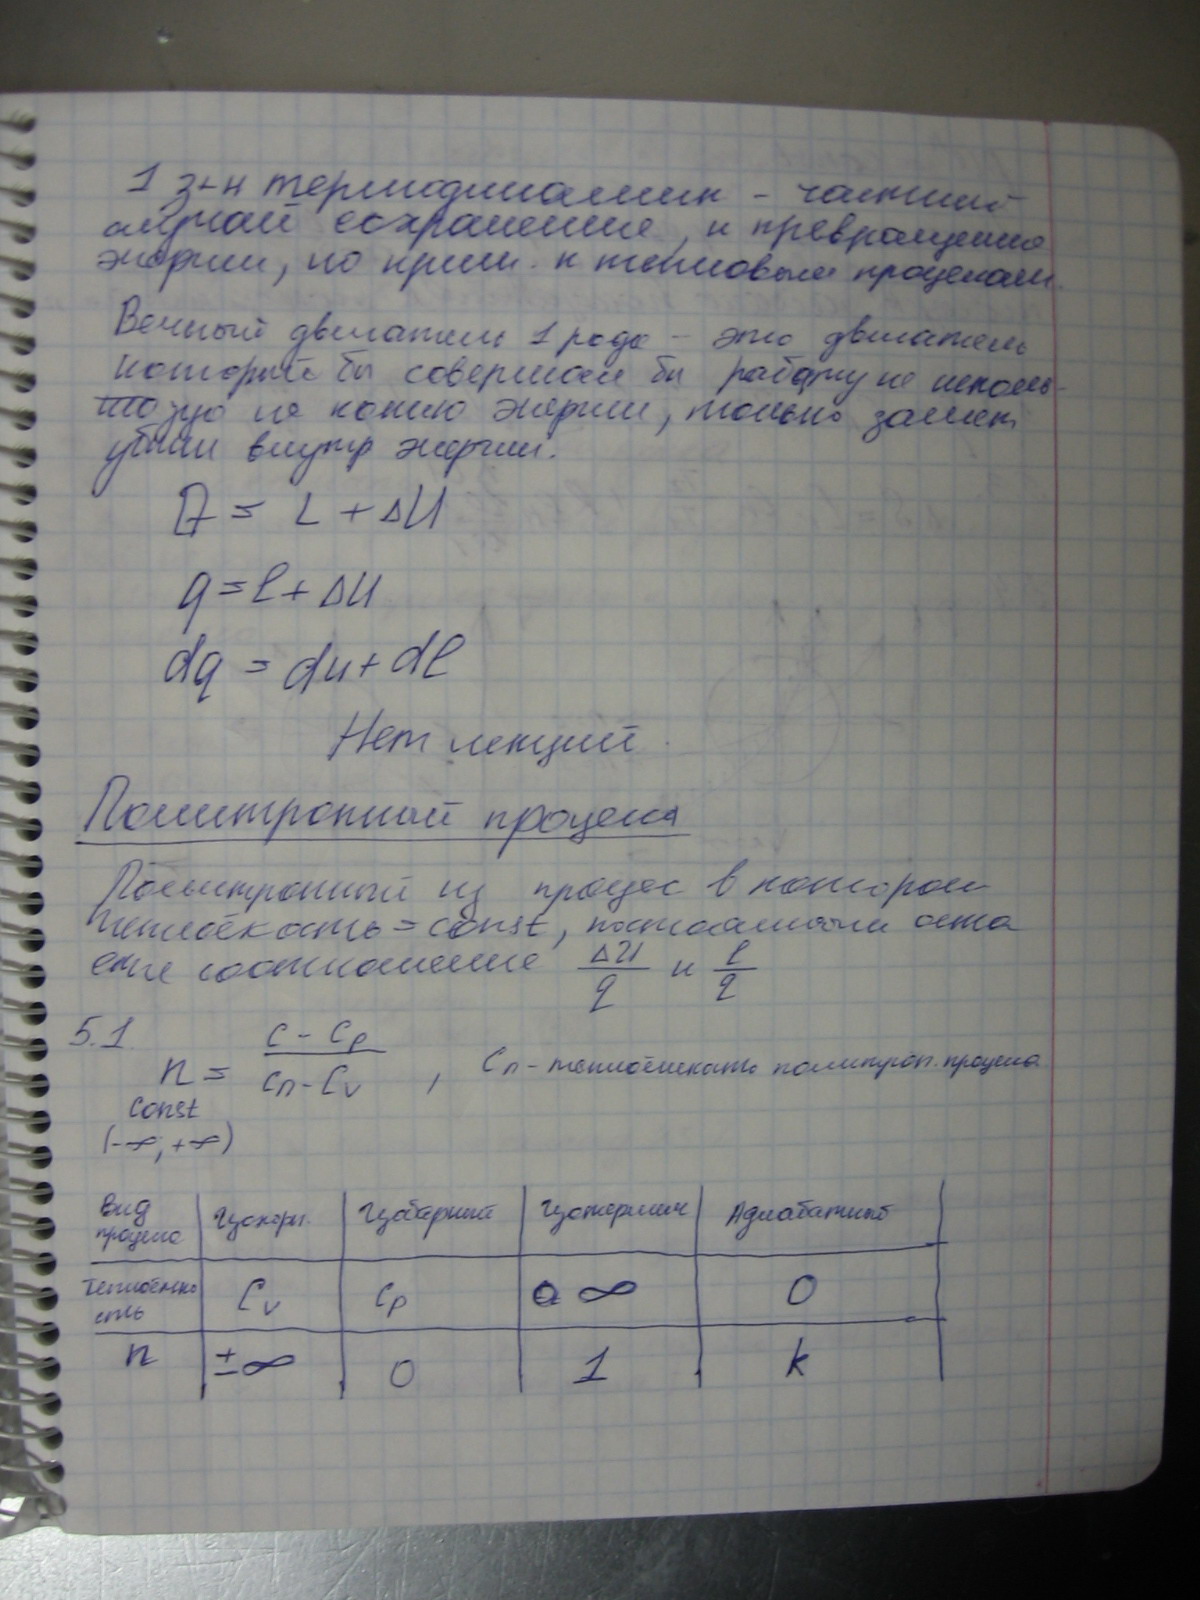 1 з-н термодинамик - частный
случай сохранение, и превращение
энергии, но прим. к тепловым процесам.
Вечный двигатель 1 рода - это двигатель
который бы совершал бы работу не исполь-
зую не какию энергии, только за счет
убыли внутр энергии.
Q = L + ΔU
q = l + Δu
dq = du + dl
Нет лекций.
Политропный процесс
Политропный из процес в котором
теплоёкасть = const, постоянным оста
ение соотношение Δu/q и l/q
5.1
n = (c - cp)/(cп - cv) , Cп - теплоёмкать политроп. процеса
const
(-∞; +∞)
Вид процеса | Изохорн. | Изобарный | Изотермич | Адиабатный
Теплоёмко сть | Cv | Cp | ∞ | 0
n | ±∞ | 0 | 1 | k